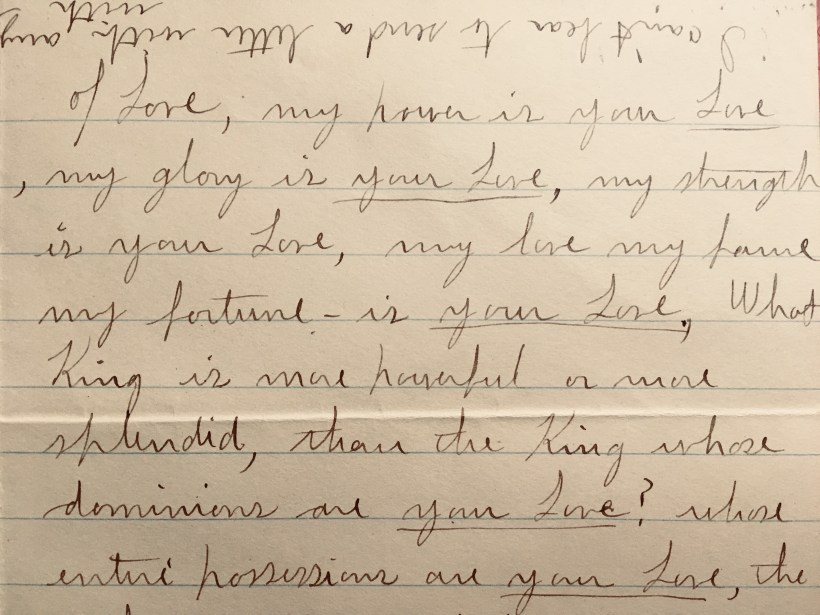 with
I can't bear to send a letter with any
of Love, my power is your Love
, my glory is your Love, my strength
is your Love, my love my fame
my fortune - is your Love, What
King is more powerful or more
splendid, than the King whose
dominions are your Love? whose
entire possessions are your Love, the